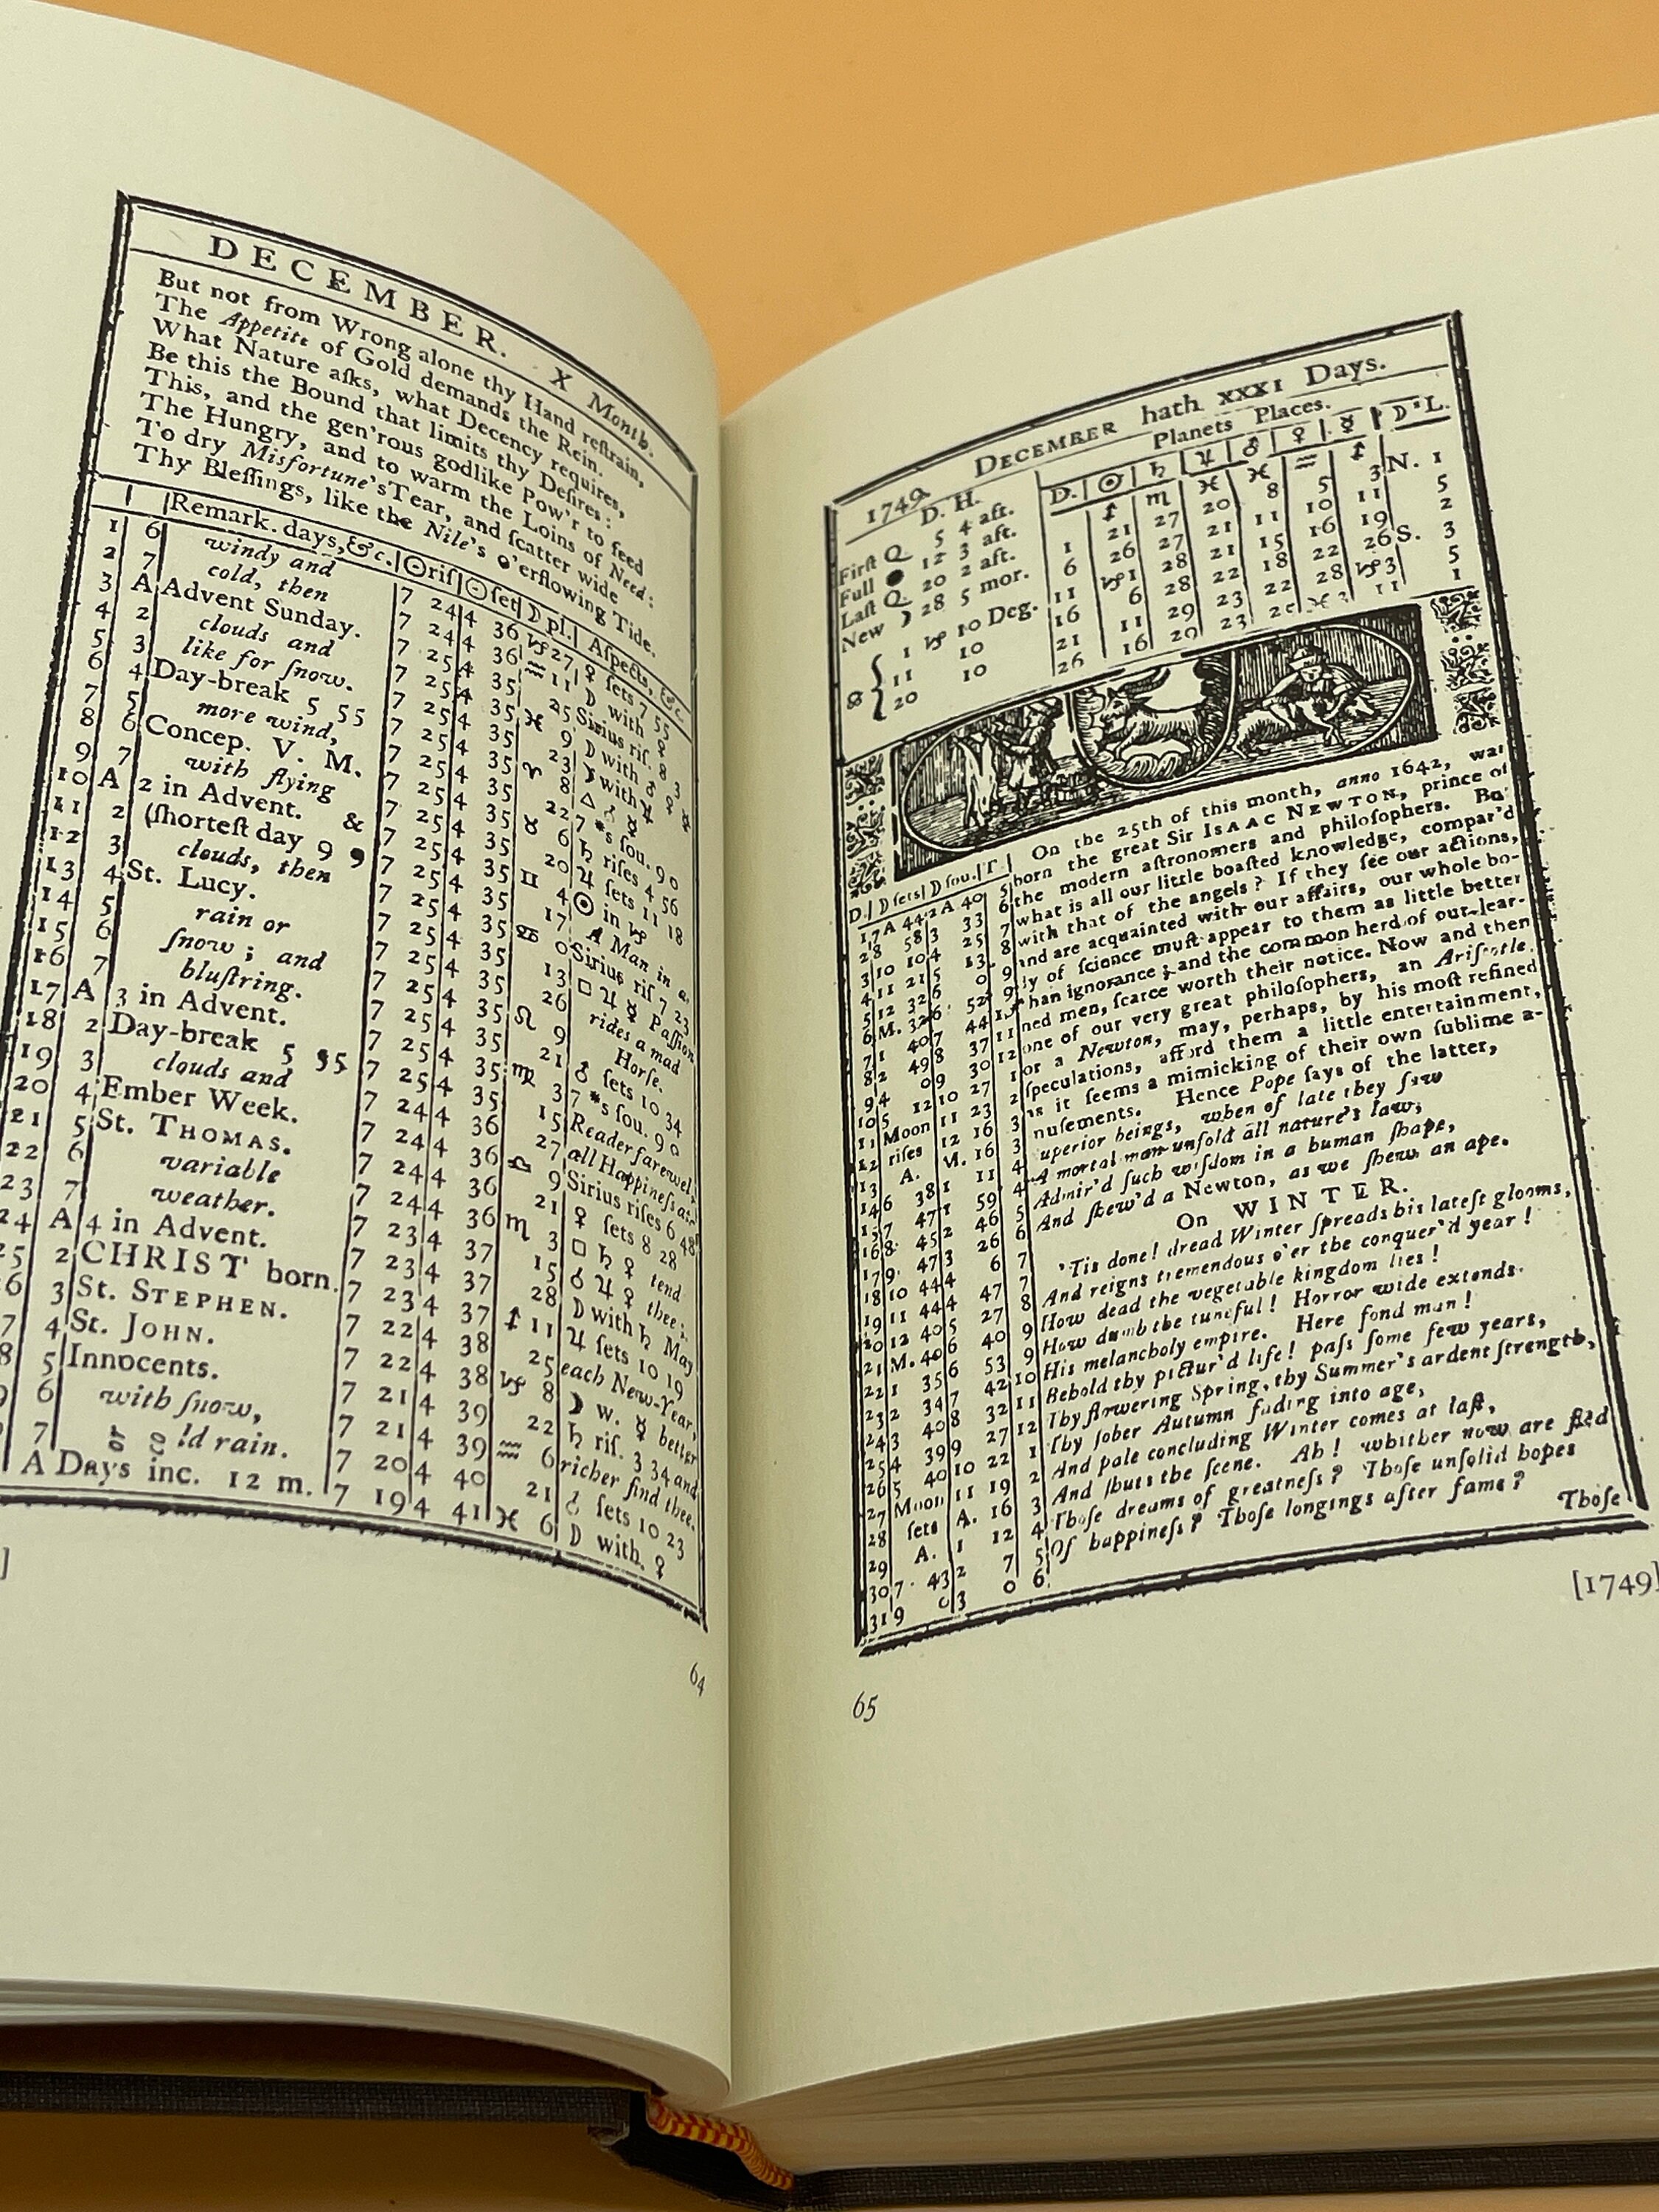 DECEMBER. X Month.
But not from Wrong alone thy Hand reſtrain,
The Appetite of Gold demands the Rein.
What Nature aſks, what Decency requires,
Be this the Bound that limits thy Deſires:
This, and the gen'rous godlike Pow'r to feed
The Hungry, and to warm the Loins of Need:
To dry Misfortune's Tear, and ſcatter wide
Thy Bleſſings, like the Nile's o'erflowing Tide.
Remark. days, &c. ☉ riſ ☉ ſet ☽ pl. Aſpects, &c.
1 6 windy and 7 24 4 36 ♑ 27 ♀ ſets 7 55
2 7 cold, then 7 24 4 36 ♒ 11 ☽ with ♀
3 A Advent Sunday. 7 25 4 35 25 Sirius riſ. 8 3
4 2 clouds and 7 25 4 35 ♓ 9 ☽ with ♂
5 3 like for ſnow. 7 25 4 35 23 ☽ with ♃
6 4 Day-break 5 55 7 25 4 35 ♈ 8
7 5 more wind, 7 25 4 35 22 7 *s ſou. 9 0
8 6 Concep. V. M. 7 25 4 35 ♉ 6 ♄ riſes 4 56
9 7 with flying 7 25 4 35 20 ♃ ſets 11 18
10 A 2 in Advent. & 7 25 4 35 ♊ 4 ☉ in ♑
11 2 (ſhorteſt day 9 9 7 25 4 35 17 A Man in a
12 3 clouds, then 7 25 4 35 ♋ 0 Sirius riſ 7 23
13 4 St. Lucy. 7 25 4 35 13 □ ♃ ☿ Paſſion
14 5 rain or 7 25 4 35 26 rides a mad
15 6 ſnow; and 7 25 4 35 ♌ 9 Horſe.
16 7 bluſtring. 7 25 4 35 21 ♂ ſets 10 34
17 A 3 in Advent. 7 25 4 35 ♍ 3 7 *s ſou. 9 0
18 2 Day-break 5 55 7 25 4 35 15 Reader farewel,
19 3 clouds and 7 24 4 36 27 all Happineſs
20 4 Ember Week. 7 24 4 36 ♎ 9 Sirius riſes 6 48
21 5 St. THOMAS. 7 24 4 36 21 ♀ ſets 8 28
22 6 variable 7 24 4 36 ♏ 3 □ ♄ ♀ tend
23 7 weather. 7 23 4 37 15 ♂ ♃ ♀ thee;
24 A 4 in Advent. 7 23 4 37 28 ☽ with ♄ May
25 2 CHRIST born. 7 23 4 37 ♐ 11 ♃ ſets 10 19
6 3 St. STEPHEN. 7 22 4 38 25 each New-Year,
7 4 St. JOHN. 7 22 4 38 ♑ 8 ☽ w. ☿ better
8 5 Innocents. 7 21 4 39 22 ♄ riſ. 3 34 and
9 6 with ſnow, 7 21 4 39 ♒ 6 richer find thee.
7 or cold rain. 7 20 4 40 21 ♂ ſets 10 23
A Days inc. 12 m. 7 19 4 41 ♓ 6 ☽ with. ♀
]
64
DECEMBER hath XXXI Days.
1749. Planets Places.
D. H. D. ☉ ♄ ♃ ♂ ♀ ☿ ☽'s L.
Firſt Q. 5 4 aft. ♐ ♏ ♓ ♓ ♒ ♐
Full ● 12 3 aft. 1 21 27 20 8 5 3 N. 1
Laſt Q. 20 2 aft. 6 26 27 21 11 10 11 5
New ☽ 28 5 mor. 11 ♑ 1 28 21 15 16 19 2
☊ { 1 ♑ 10 Deg. 16 6 28 22 18 22 26 S. 3
11 10 21 11 29 23 22 28 ♑ 3 5
20 10 26 16 29 23 25 ♓ 3 11 1
D. ☽ ſets ☽ ſou. T.
On the 25th of this month, anno 1642, was
born the great Sir ISAAC NEWTON, prince of
the modern aſtronomers and philoſophers. But
what is all our little boaſted knowledge, compar'd
with that of the angels? If they ſee our actions,
and are acquainted with our affairs, our whole bo-
ly of ſcience muſt appear to them as little better
than ignorance; and the common herd of our lear-
ned men, ſcarce worth their notice. Now and then
one of our very great philoſophers, an Ariſtotle,
or a Newton, may, perhaps, by his moſt refined
ſpeculations, afford them a little entertainment,
as it ſeems a mimicking of their own ſublime a-
nuſements. Hence Pope ſays of the latter,
uperior beings, when of late they ſaw
A mortal man unfold all nature's law,
Admir'd ſuch wiſdom in a human ſhape,
And ſhew'd a Newton, as we ſhew an ape.
On WINTER.
'Tis done! dread Winter ſpreads his lateſt glooms,
And reigns tremendous o'er the conquer'd year!
How dead the vegetable kingdom lies!
How dumb the tuneful! Horror wide extends
His melancholy empire. Here fond man!
Behold thy pictur'd life! paſs ſome few years,
Thy flowering Spring, thy Summer's ardent ſtrength,
Thy ſober Autumn fading into age,
And pale concluding Winter comes at laſt,
And ſhuts the ſcene. Ah! whither now are fled
Thoſe dreams of greatneſs? Thoſe unſolid hopes
Of happineſs? Thoſe longings after fame?
Thoſe
[1749]
65